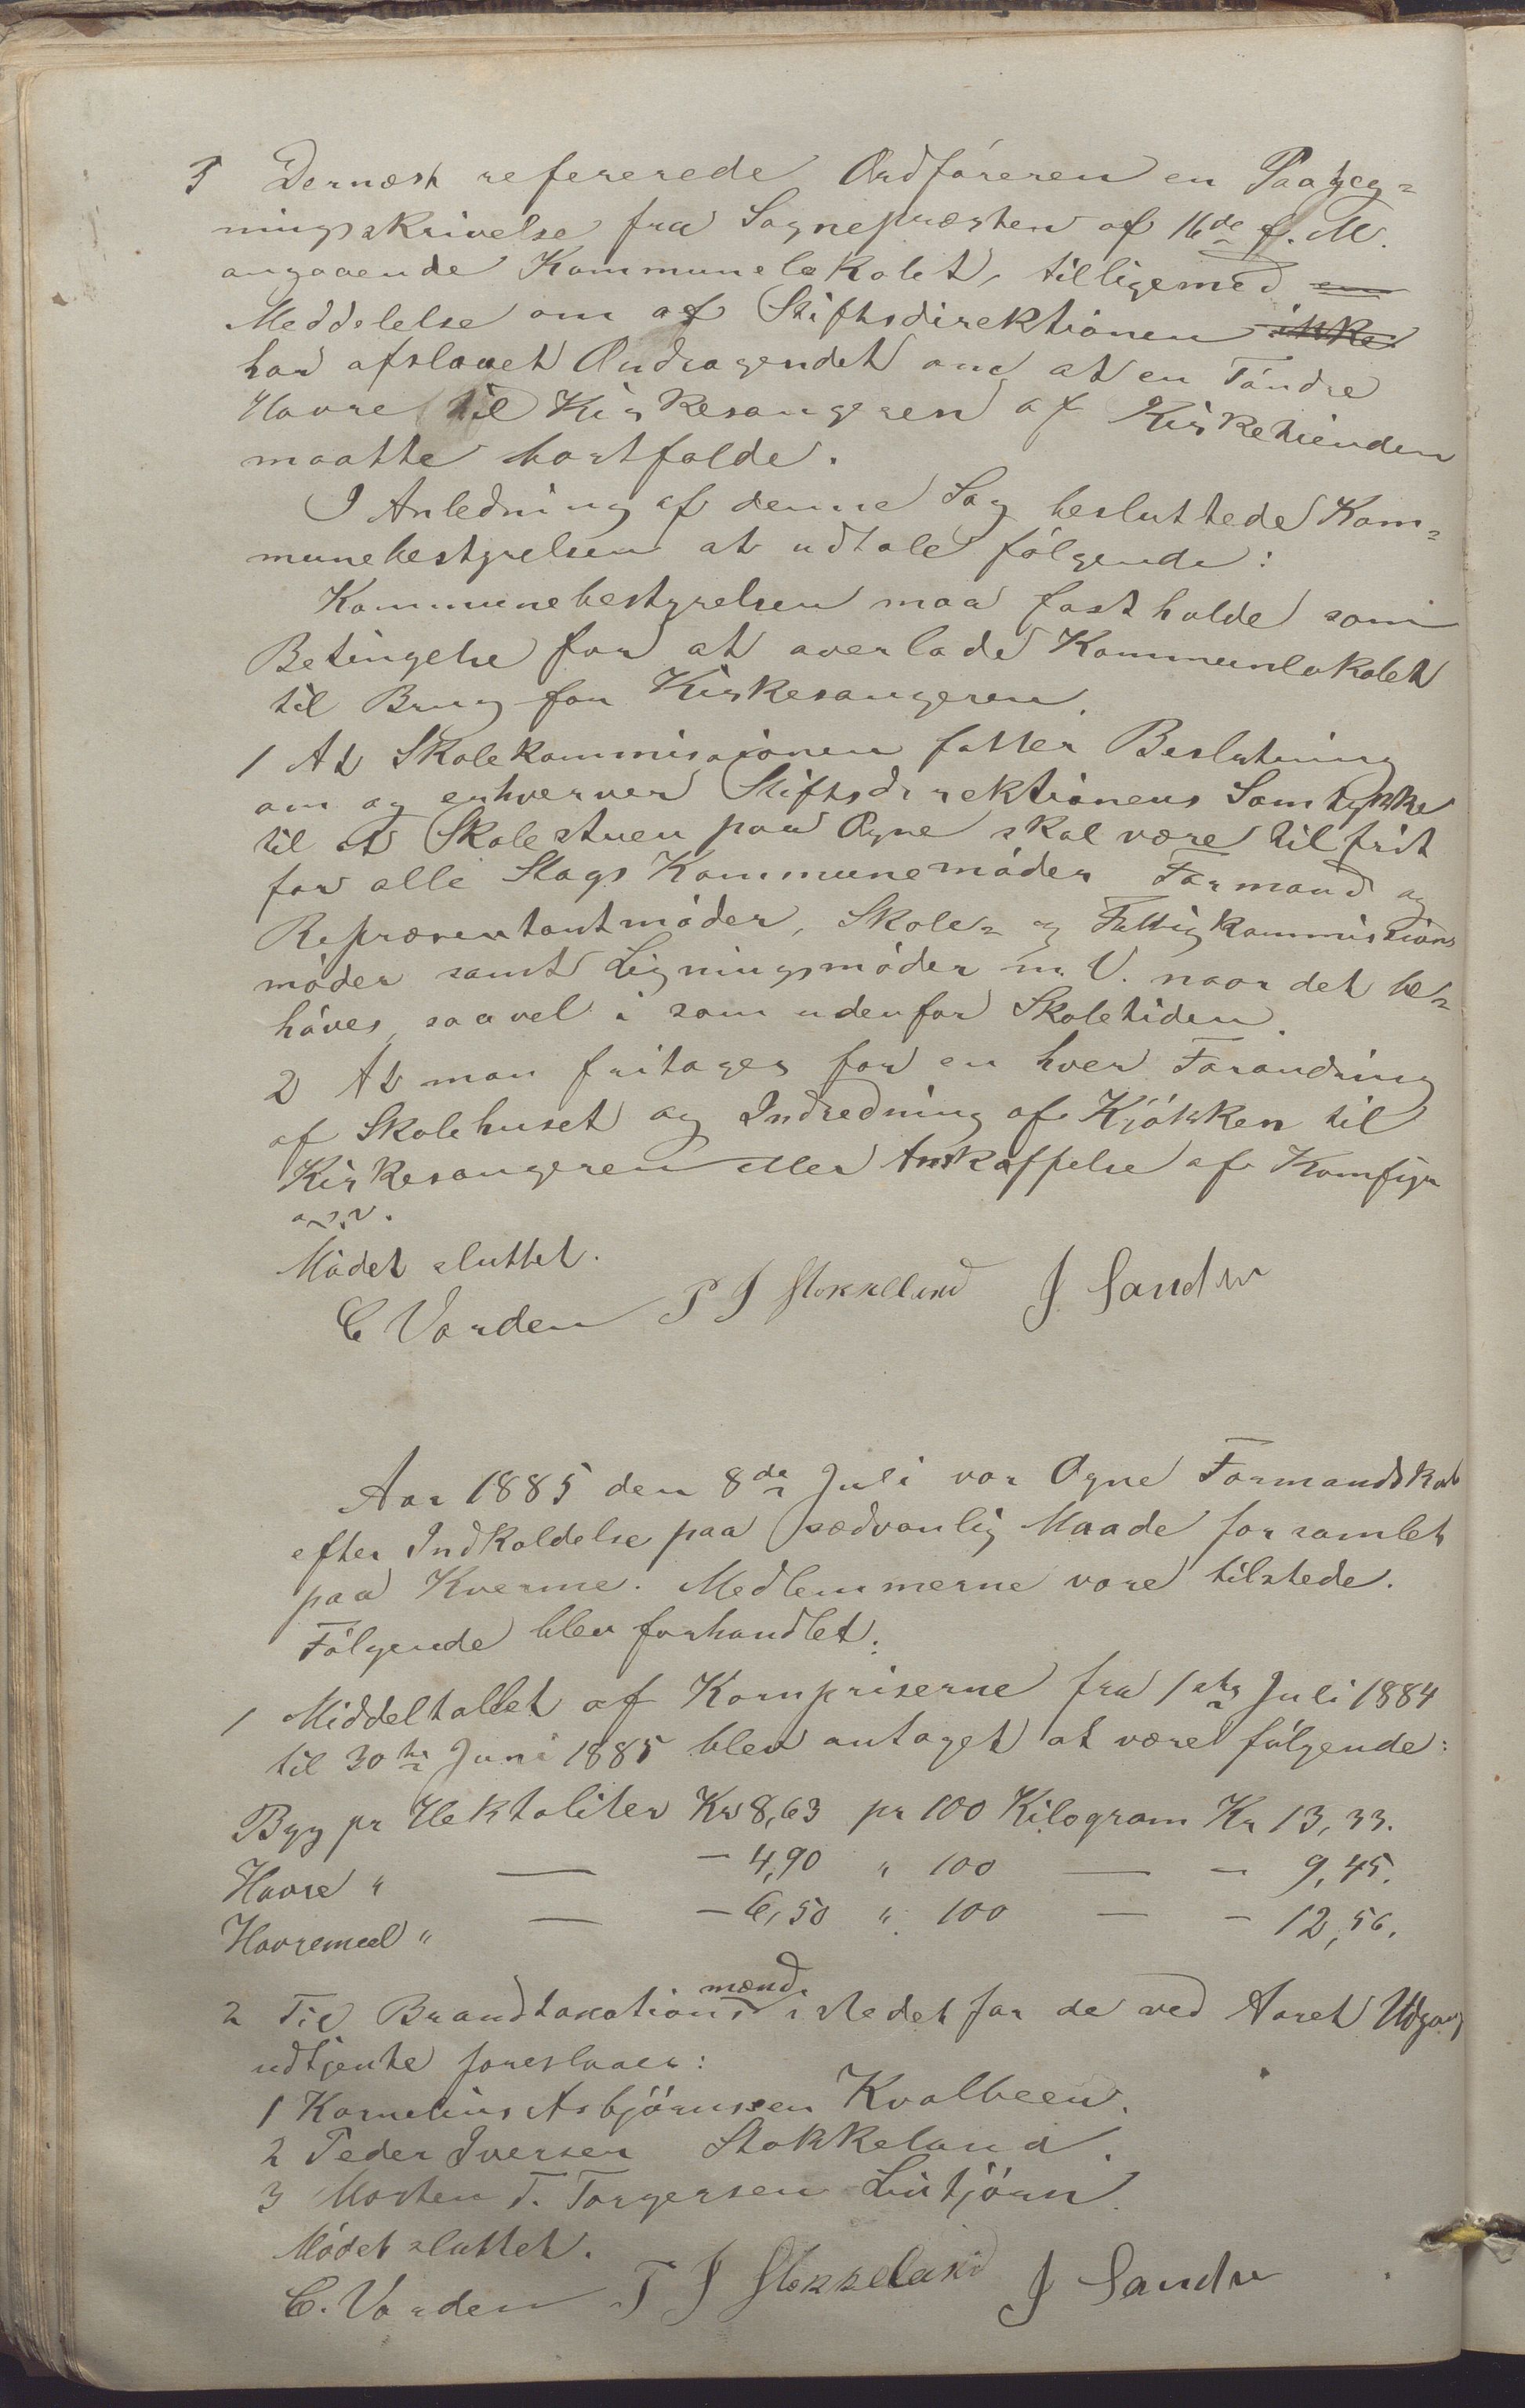 5 Dernæst refererede Ordføreren en Paateg=
ningsskrivelse fra Sognepræsten af 16de f. M.
angaaende Kommunelokalet, tilligemed en
Meddelelse om af Stiftsdirektionen ikke
har afslaaet Andragendet om at en Tøndre
Havre til Kirkesangeren af Kirketienden
maatte bortfalde.
I Anledning af denne Sag besluttede Kom=
munebestyrelsen at udtale følgende:
Kommunebestyrelsen maa fastholde som
Betingelse for at overlade Kommunlokalet
til Brug for Kirkesangeren.
1 At Skolekommissionen fatter Beslutning
om og erhverver Stiftsdirektionens Samtykke
til at Skolestuen paa Ogne skal være til frit
for alle Slags Kommunemøder Formand og
Repræsentantmøder, Skole= og Fattigkommissions
møder samt Ligningsmøder m. V. naar det be=
høves, saavel i som udenfor Skoletiden.
2 At man fritages for en hver Forandring
af Skolehuset og Indredning af Kjøkken til
Kirkesangeren eller Anskaffelse af Komfyr
o.s.v.
Mødet sluttet.
C Varden P I Stokkeland J Sandve
Aar 1885 den 8de Juli var Ogne Formandskab
efter Indkaldelse paa sædvanlig Maade forsamlet
paa Kverme. Medlemmerne vare tilstede.
Følgende blev forhandlet:
1 Middeltallet af Kornpriserne fra 1ste Juli 1884
til 30te Juni 1885 blev antaget at være følgende:
Byg pr Hektoliter Kr 8,63 pr 100 Kilogram Kr 13,33.
Havre " — - 4,90 " 100 — - 9,45.
Havremeel " — - 6,50 " 100 — - 12,56.
2 Til Brandtaxationsmænd i Stedet for de ved Aaret Udgang
udtjente foreslaaes:
1 Kornelius Asbjørnssen Kvalbeen.
2 Peder Iversen Stokkeland.
3 Morten T. Torgersen Lintjørn.
Mødet sluttet.
C. Varden P I Stokkeland J Sandve